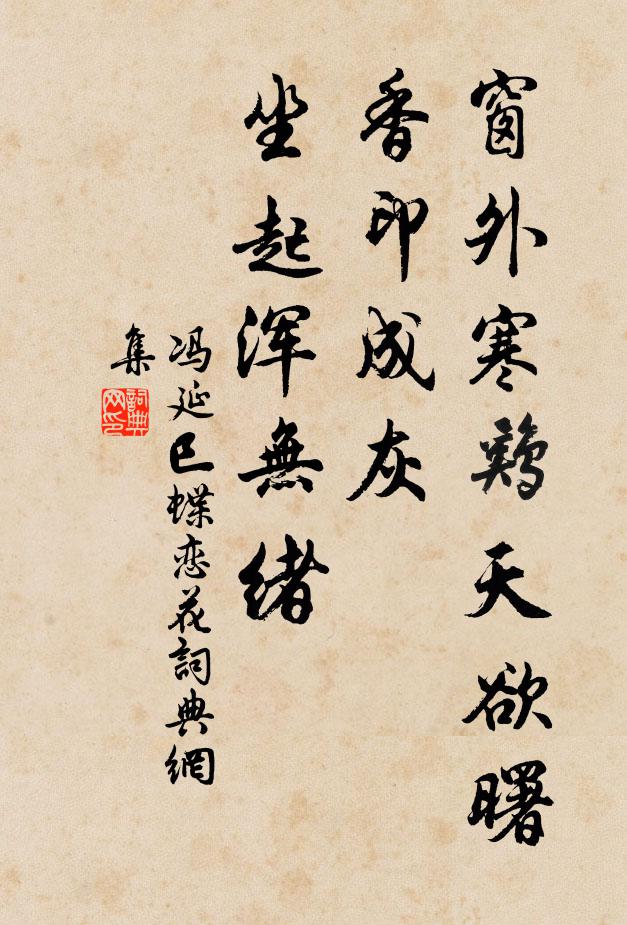 窗外寒鷄天欲曙
香印成灰
坐起浑無緒
冯延巳蝶恋花詞典網
集
詞典
网印